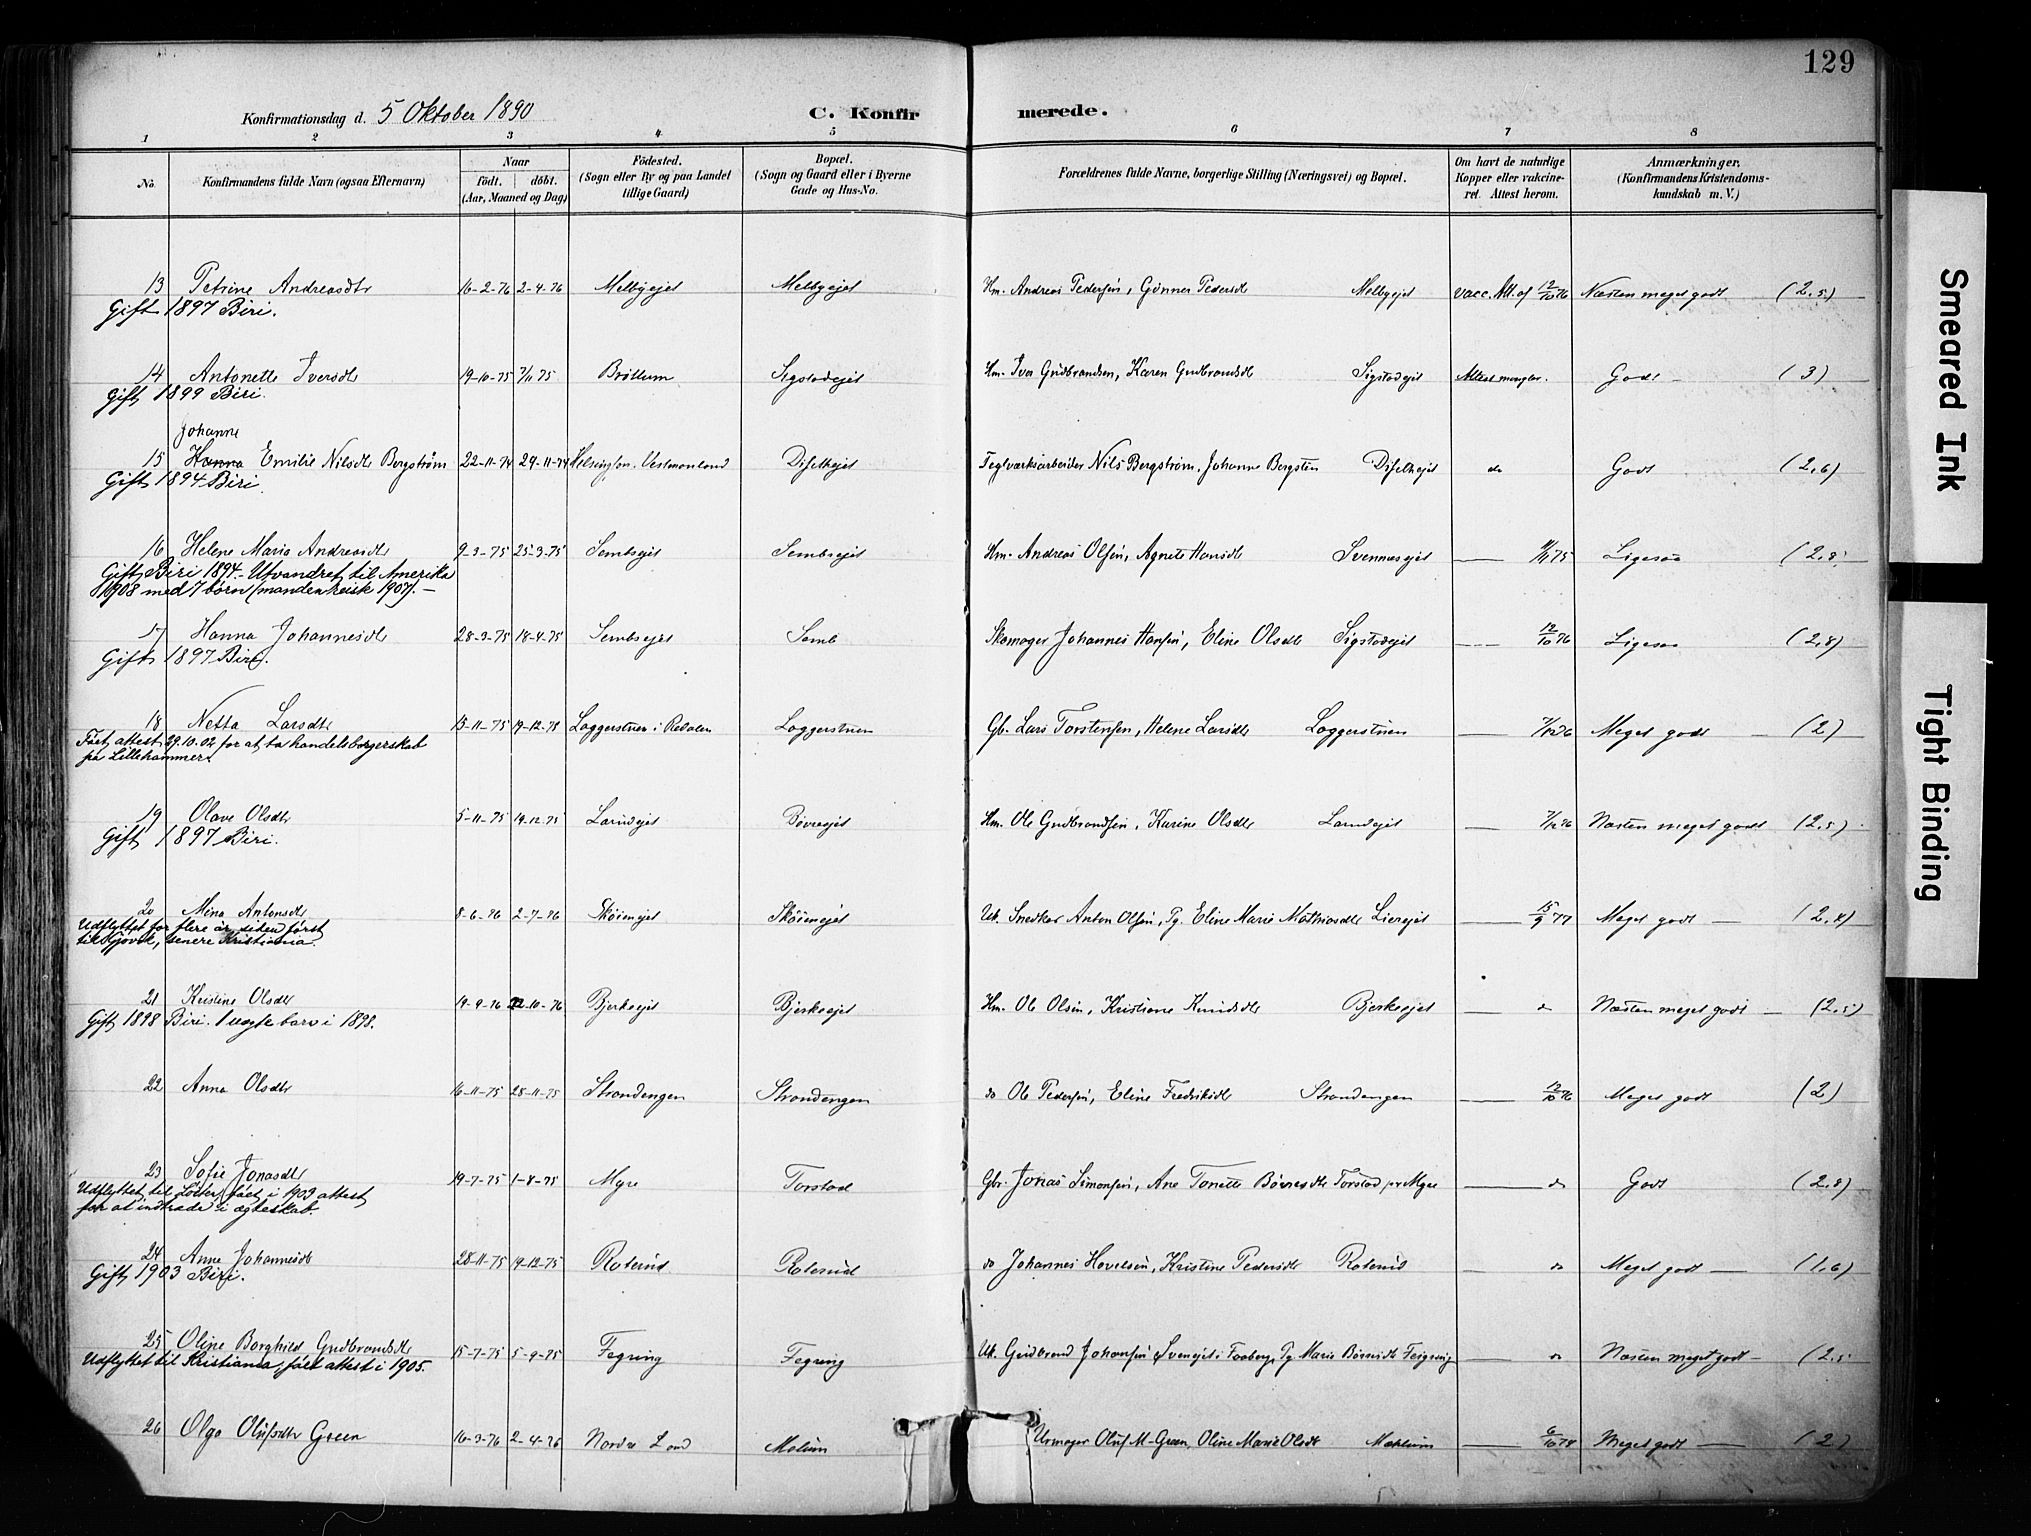 129
Konfirmationsdag d. 5 Oktober 1890 C. Konfir merede.
1 2 3 4 5 6 7 8
No. Konfirmandens fulde Navn (ogsaa Efternavn) Naar födt. döbt. (Aar, Maaned og Dag) Födested. (Sogn eller By og paa Landet tillige Gaard) Bopæl. (Sogn og Gaard eller i Byerne Gade og Hus-No. Forældrenes fulde Navne, borgerlige Stilling (Næringsvei) og Bopæl. Om havt de naturlige Kopper eller vakcineret. Attest herom. Anmærkninger. (Konfirmandens Kristendomskundskab m. V.)
13 Petrine Andreasdtr 16-2-76 2-4-76 Melbyejet Melbyejet Hm. Andreas Pedersen, Gunner Pedersdtr Melbyejet vacc. Att. af 12/10 76 Næsten meget godt (2,5)
Gift 1897 Biri.
14 Antonette Iversdtr 19-10-75 7/11 75 Brøttum Sigstadejet Hm. Iver Gudbrandsen, Karen Gudbrandsdtr Sigstadejet Attest mangler. Godt (3)
Gift 1899 Biri.
Johanne
15 Hanna Emilie Nilsdtr Bergstrøm 22-11-74 29-11-74 Helsington. Vestmanland Diselhejet Teglværksarbeider Nils Bergstrøm, Johanne Bergsten Diselhejet do Godt (2,6)
Gift 1894 Biri.
16 Helene Maria Andreasdtr 9-3-75 25-3-75 Sembsejet Sembsejet Hm. Andreas Olsen, Agnete Hansdtr Svennesejet — 75 Ligesaa (2,8)
Gift Biri 1894. Utvandret til Amerika
1908 med 7 børn (manden reiste 1907). —
17 Hanna Johannesdtr 28-3-75 18-4-75 Sembsejet Semb Skomager Johannes Hansen, Eline Olsdtr Sigstadejet — 12/10 76 Ligesaa (2,8)
Gift 1897 Biri.
18 Netta Larsdtr 15-11-75 19-12-75 Laggerstuen i Redalen Laggerstuen Gb. Lars Torstensen, Helene Larsdtr Laggerstuen — 7/12 76 Meget godt — (2)
Fået attest 29.10.02 for at ta handelsborgerskab
på Lillehammer.
19 Olave Olsdtr 5-11-75 19-12-75 Larudejet Bøvreejet Hm. Ole Gudbrandsen, Karine Olsdtr Larudejet — 7/12 76 Næsten meget godt (2,5)
Gift 1897 Biri.
20 Mina Antonsdtr 8-6-76 2-7-76 Skøienejet Skøienejet Uk. Snedker Anton Olsen, Pg. Eline Marie Mathiasdtr Lierejet — 15/9 77 Meget godt — (2,4)
Udflyttet for flere år siden først
til Gjøvik, senere Kristiania.
21 Kristine Olsdtr 19-9-76 22-10-76 Bjerkeejet Bjerkeejet Hm. Ole Olsen, Kristiane Knudsdtr Bjerkeejet — do Næsten meget godt — (2,5)
Gift 1898 Biri. 1 uegte barn i 1898.
22 Anna Olsdtr 16-11-75 28-11-75 Strandengen Strandengen do Ole Pedersen, Eline Fredriksdtr Strandengen — 12/10 76 Meget godt (2)
23 Sofie Jonasdtr 19-7-75 1-8-75 Myre Torstad Gbr. Jonas Simonsen, Ane Tonette Børresdtr Torstad pr Myre — do Godt (2,8)
Udflyttet til Løiten, fået i 1903 attest
for at indtræde i ægteskab.
24 Anne Johannesdtr 28-11-75 19-12-75 Roterud Roterud do Johannes Hovelsen, Kristine Pedersdtr Roterud — do Meget godt — (1,6)
Gift 1903 Biri.
25 Oline Borghild Gudbrandsdtr 15-7-75 5-9-75 Fegring Fegring Uk. Gudbrand Johansen Svenejet i Faaberg, Pg. Marie Børresdtr Feigring — do Næsten meget godt — (2,5
Udflyttet til Kristiania, fået attest i 1905.
26 Olga Olufsdtr Green 16-3-76 2-4-76 Nordre Land Mælum Urmager Oluf M. Green, Oline Marie Olsdt Mæhlum — 6/10 78 Meget godt — (2)
Smeared Ink
Tight Binding